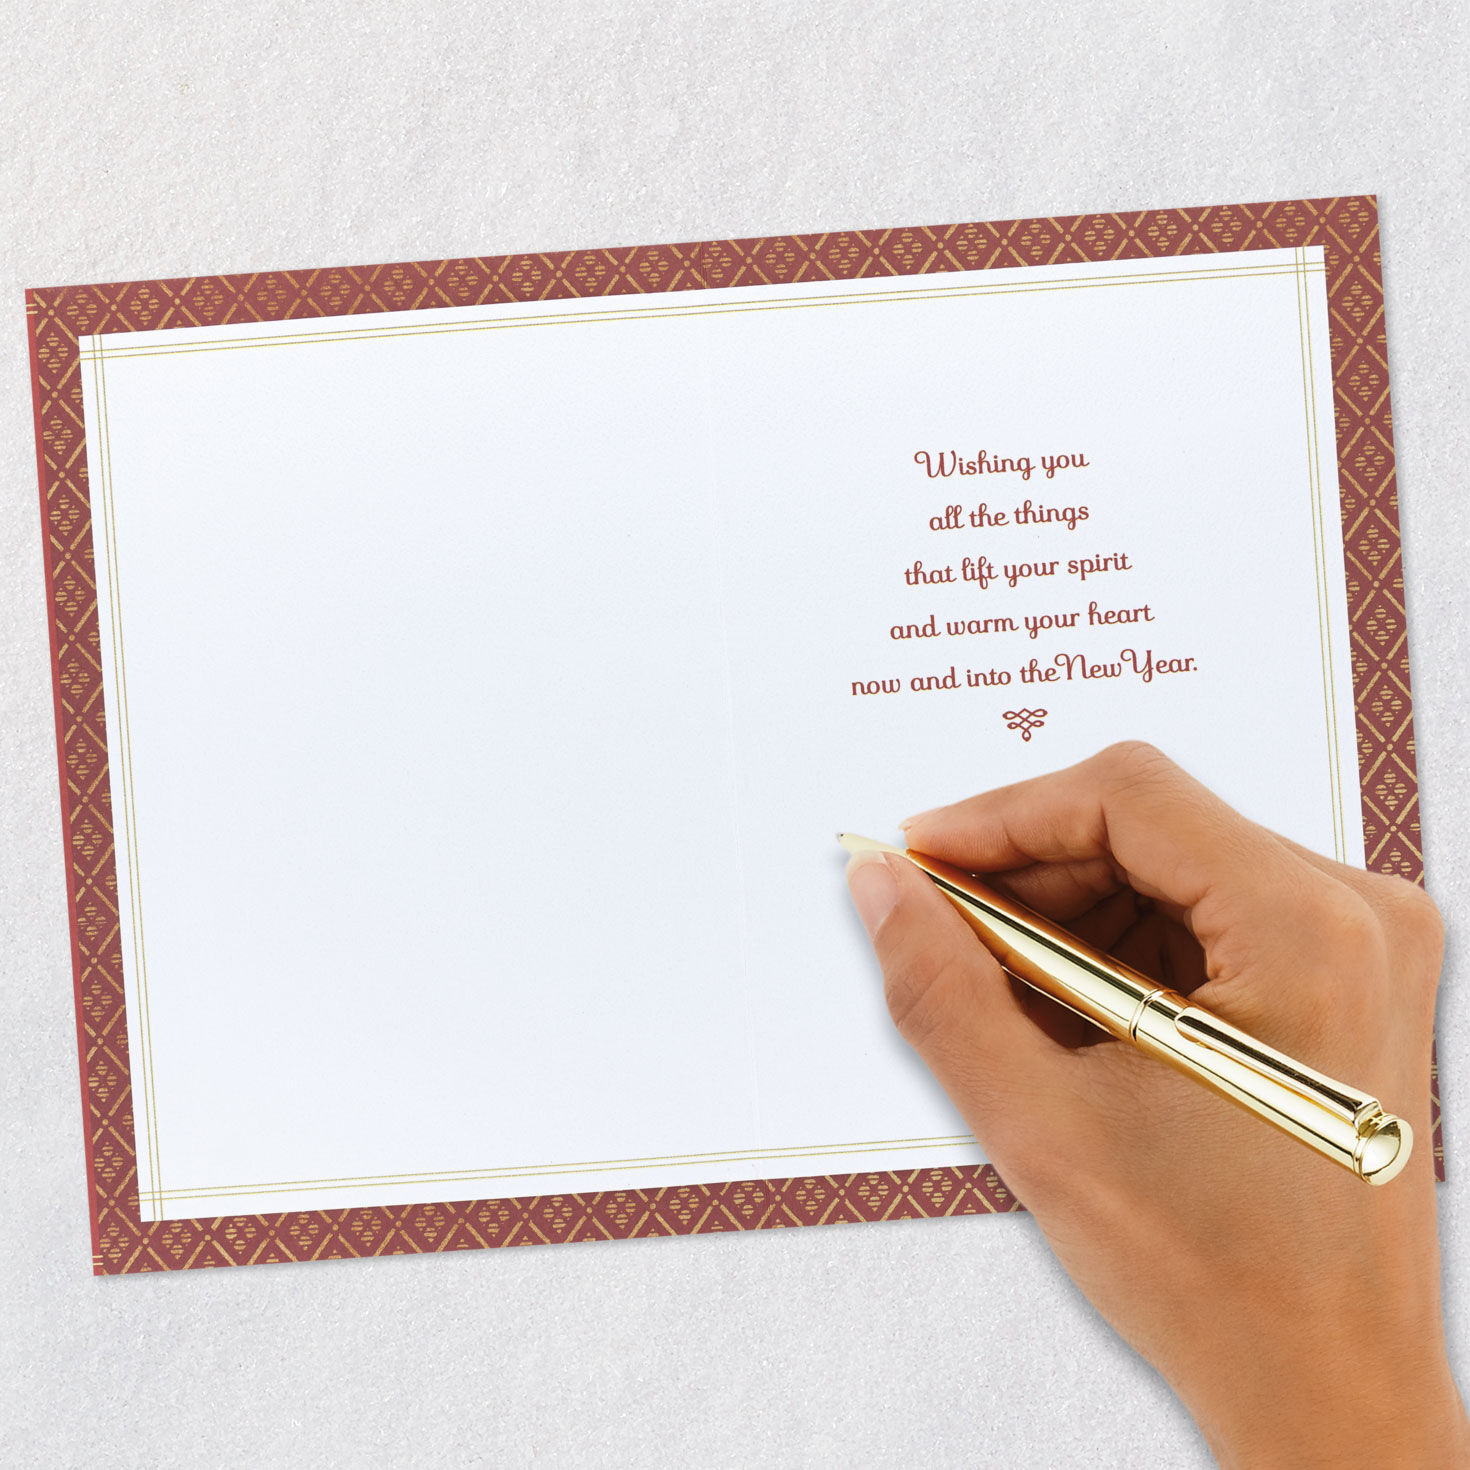 Wishing you
all the things
that lift your spirit
and warm your heart
now and into the New Year.